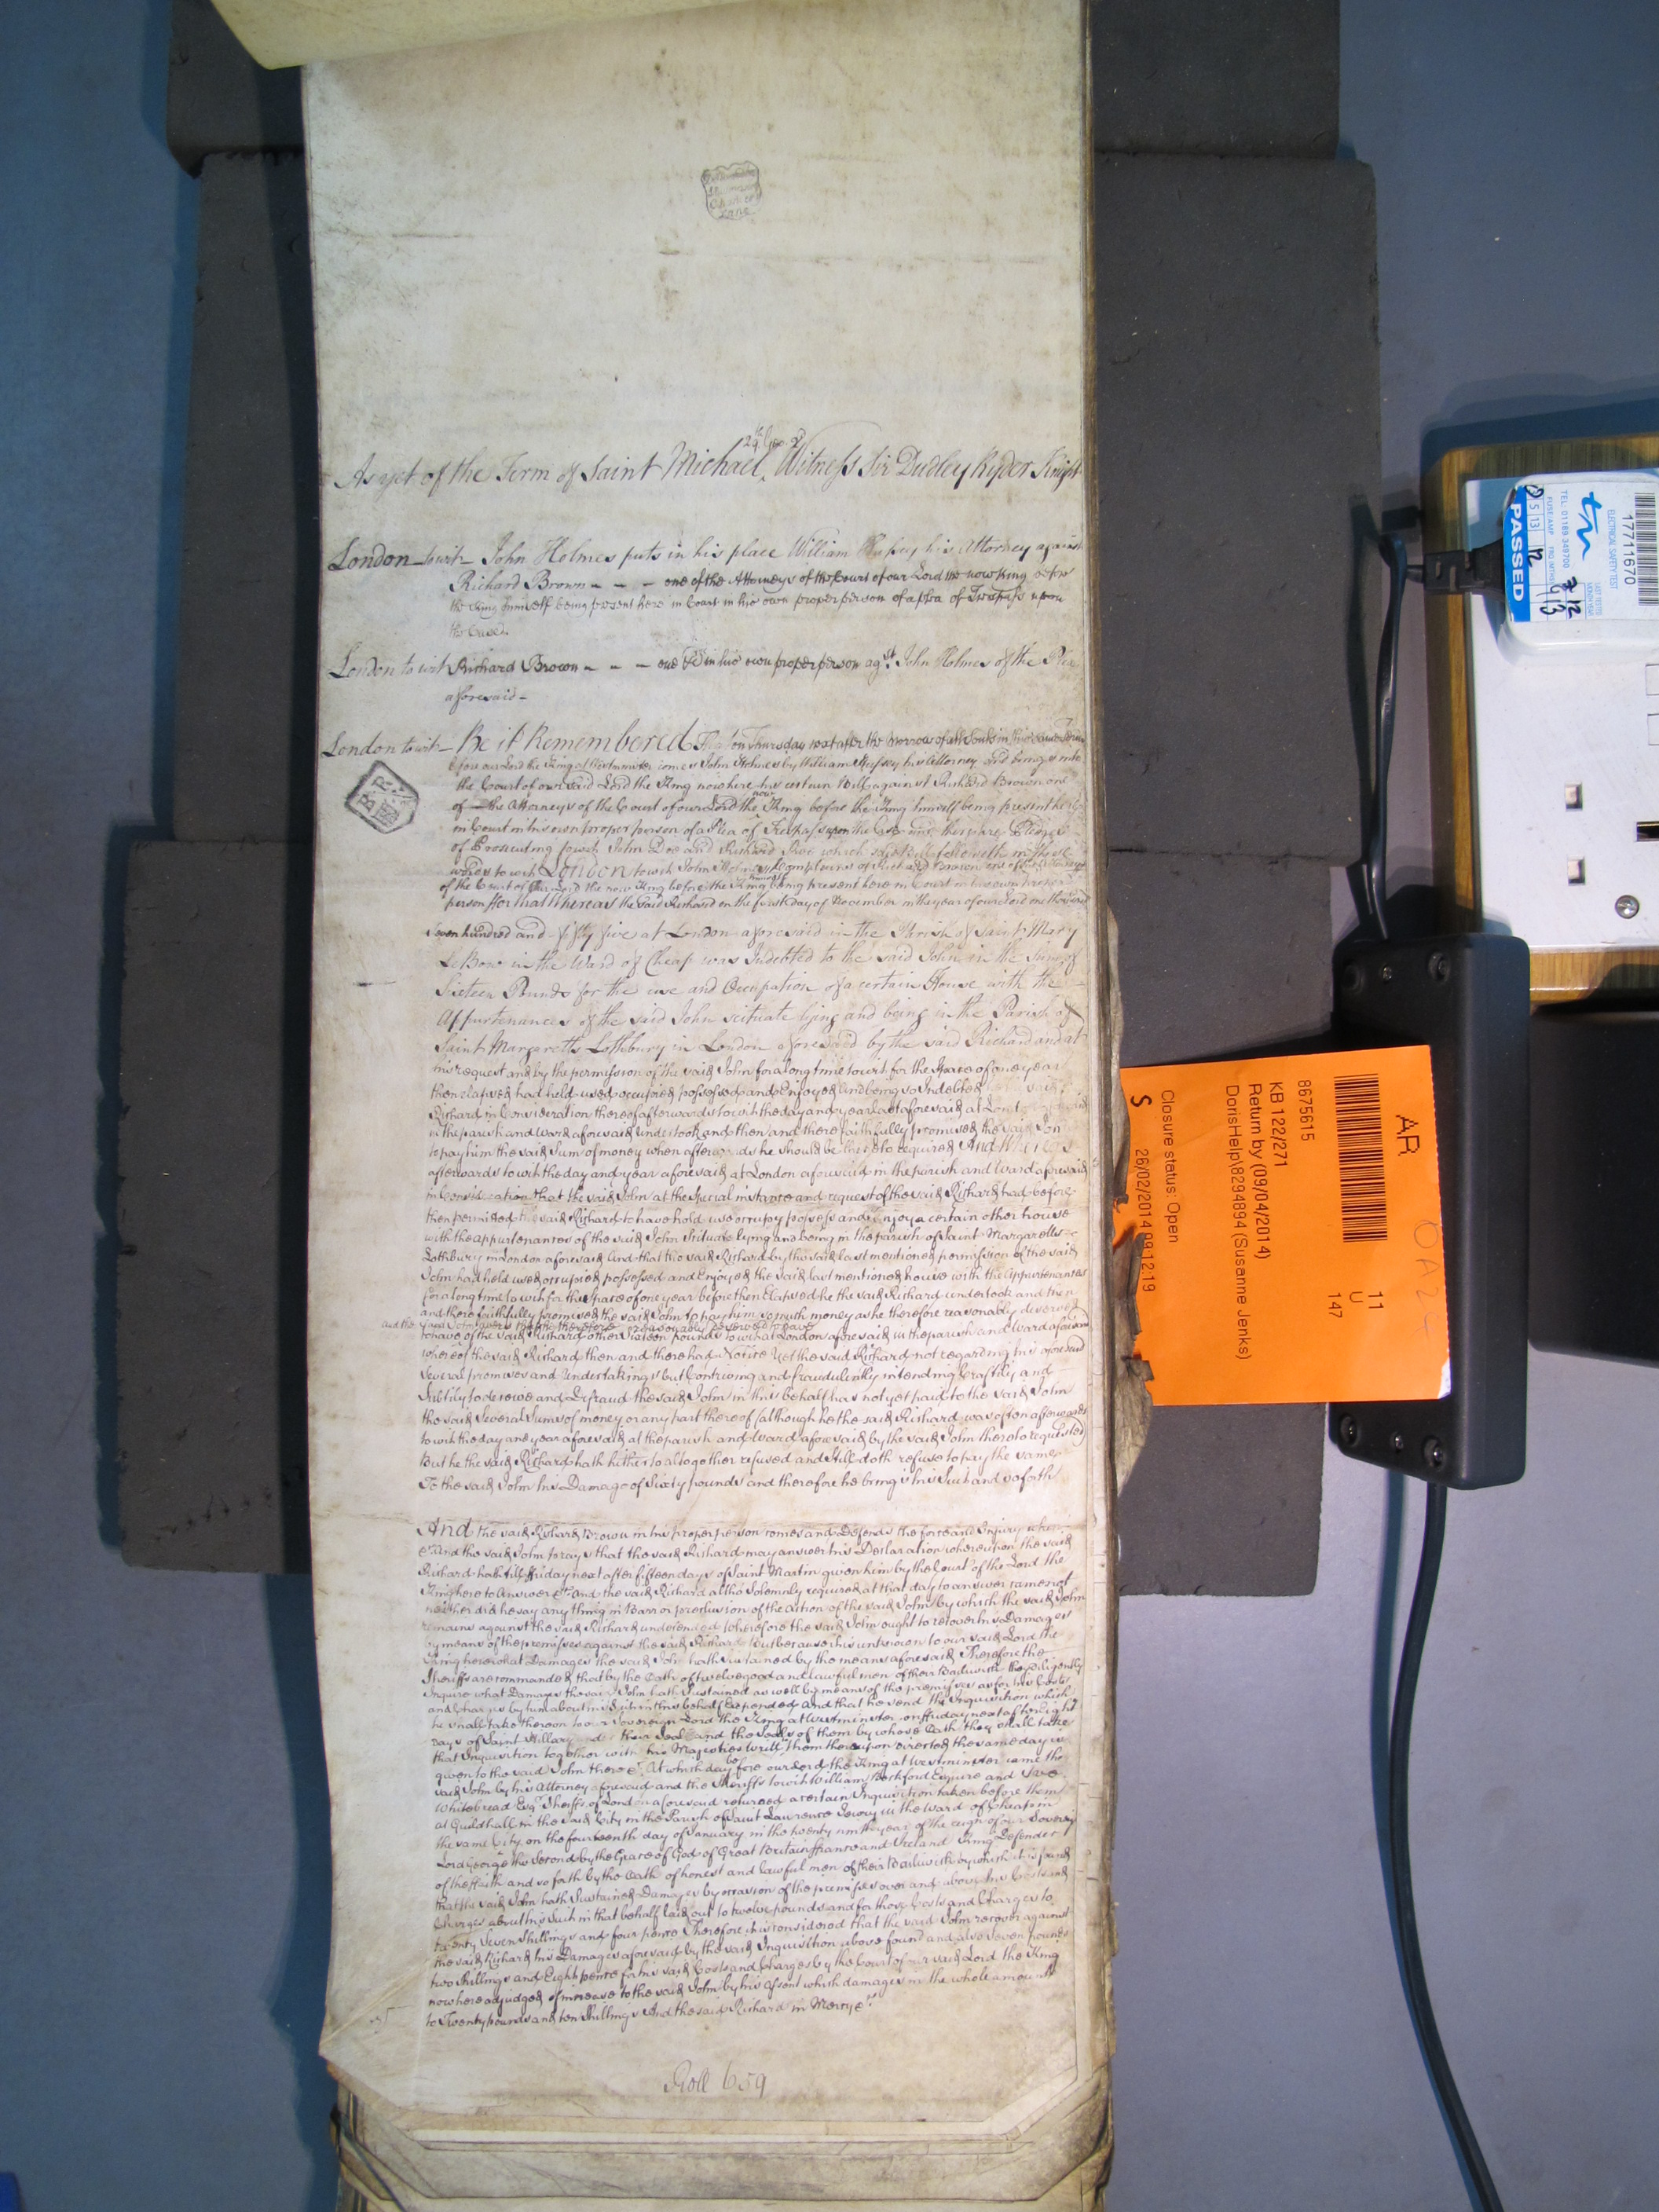 29th Geo. 2d
As yet of the Term of Saint Michael, Witness Sir Dudley Ryder Knight
London to wit John Holmes puts in his place William his Attorney against
Richard Brown - - - one of the Attorneys of the Court of our Lord the now King before
the King himself being present here in Court in his own proper person of a plea of Trespass upon
the Case.
London to wit Richard Brown - - - one &c in his own proper person agst. John Holmes of the Plea
aforesaid -
London to wit - Be it Remembered That on Thursday next after the Morrow of all Souls in this same Term
before our Lord the King at Westminster comes John Holmes by William his Attorney and brings into
the Court of our said Lord the King now here his certain Bill against Richard Brown one
of the Attorneys of the Court of our Lord the now King before the King himself being present here
in Court in his own proper person of a Plea of Trespass upon the Case and there are Pledges
of Prosecuting to wit John Doe and Richard Roe which said Bill follows in these
words to wit London to wit John Holmes Complains of Richard Brown one of the Attorneys
of the Court of our Lord the now King before the King himself being present here in Court in his own proper
person For that Whereas the said Richard on the first day of December in the year of our Lord one thousand
seven hundred and fifty five at London aforesaid in the Parish of Saint Mary
Le Bow in the Ward of Cheap was Indebted to the said John in the Sum of
Sixteen Pounds for the use and Occupation of a certain House with the
Appurtenances of the said John scituate lying and being in the Parish of
Saint Margaretts Lothbury in London aforesaid by the said Richard and at
his request and by the permission of the said John for a long time to wit for the Space of one year
then elapsed had held used occupied possessed and Enjoyed And being so Indebted said
Richard in Consideration thereof afterwards to wit the day and year last aforesaid at London aforesaid
in the parish and Ward aforesaid undertook and then and there faithfully promised the said John
to pay him the said Sum of money when afterwards he should be thereto required And Whereas
afterwards to wit the day and year aforesaid at London aforesaid in the parish and Ward aforesaid
in Consideration that the said John at the Special instance and request of the said Richard had before
then permitted the said Richard to have hold use occupy possess and Enjoy a certain other house
with the appurtenances of the said John Scituate lying and being in the parish of Saint Margaretts
Lothbury in London aforesaid And that the said Richard by the said last mentioned permission of the said
John had held used occupied possessed and Enjoyed the said last mentioned house with the Appurtenances
for a long time to wit for the Space of one year before then Elapsed he the said Richard undertook and then
and there faithfully promised the said John to pay him so much money as he therefore reasonably deserved
and the said John avers that he therefore reasonably deserved to have
to have of the said Richard other Sixteen pounds to wit at London aforesaid in the parish and Ward aforesaid
whereof the said Richard then and there had Notice Yet the said Richard not regarding his aforesaid
Several promises and Undertakings but Contriving and fraudulently intending Craftily and
Subtily to deceive and Defraud the said John in this behalf has not yet paid to the said John
the said Several Sums of money or any part thereof (although he the said Richard was often afterwards
to wit the day and year aforesaid at the parish and Ward aforesaid by the said John thereto requested)
But he the said Richard hath hitherto altogether refused and still doth refuse to pay the same
To the said John his Damage of Sixty pounds and therefore he brings his Suit and so forth
And the said Richard Brown in his proper person comes and Defends the force and Injury when
&c And the said John prays that the said Richard may answer his Declaration whereupon the said
Richard hath till Friday next after fifteen days of Saint Martin given him by the Court of the Lord the
King here to Answer &c And the said Richard altho Solemnly required at that day to answer came not
neither did he say any thing in Barr or preclusion of the action of the said John by which the said John
remains against the said Richard undefended Wherefore the said John ought to recover his Damages
by means of the premisses against the said Richard But because it is unknown to our said Lord the
King here what Damages the said John hath Sustained by the means aforesaid Therefore the
Sheriffs are commanded that by the Oath of twelve good and lawful men of their Bailiwick they Diligently
Inquire what Damages the said John hath Sustained as well by means of the premisses as for his Costs
and Charges by him about his Suit in this behalf Expended And that he send the Inquisition which
he shall take thereon to our Sovereign Lord the King at Westminster on Friday next after Eight
days of Saint Hillary under their Seals and the Seals of them by whose Oath they shall take
that Inquisition together with his Majesties Writt to them thereupon directed the same day is
given to the said John there &c. At which day before our Lord the King at Westminster came the
said John by his Attorney aforesaid and the Sheriffs to wit William Beckford Esquire and Ive
Whitebread Esqr. Sheriffs of London aforesaid returned a certain Inquisition taken before them
at Guildhall in the said City in the Parish of Saint Lawrence Jewry in the Ward of Cheap in
the same City on the fourteenth day of January in the twenty ninth year of the reign of our Sovereign
Lord George the Second by the Grace of God of Great Britain ffrance and Ireland King Defender
of the ffaith and so forth by the Oath of honest and lawful men of their Bailiwick by which it is found
that the said John hath Sustained Damages by occasion of the premisses over and above his Costs and
Charges about his Suit in that behalf laid out to twelve pounds and for those Costs and Charges to
twenty Seven Shillings and four pence Therefore it is considered that the said John recover against
the said Richard his Damages aforesaid by the said Inquisition above found and also Seven pounds
two shillings and Eight pence for his said Costs and Charges by the Court of our said Lord the King
now here adjudged of increase to the said John by his assent which damages in the whole amount
to Twenty pounds and ten Shillings And the said Richard in Mercy &c.
Roll 659
AR
11
U
147
8675615
KB 122/271
Return by (09/04/2014)
DorisHelp\8294894 (Susanne Jenks)
Closure status: Open
S 26/02/2014 09:12:19
OA24
17711670
ELECTRICAL SAFETY TEST
TEL: 01189 349700
PASSED